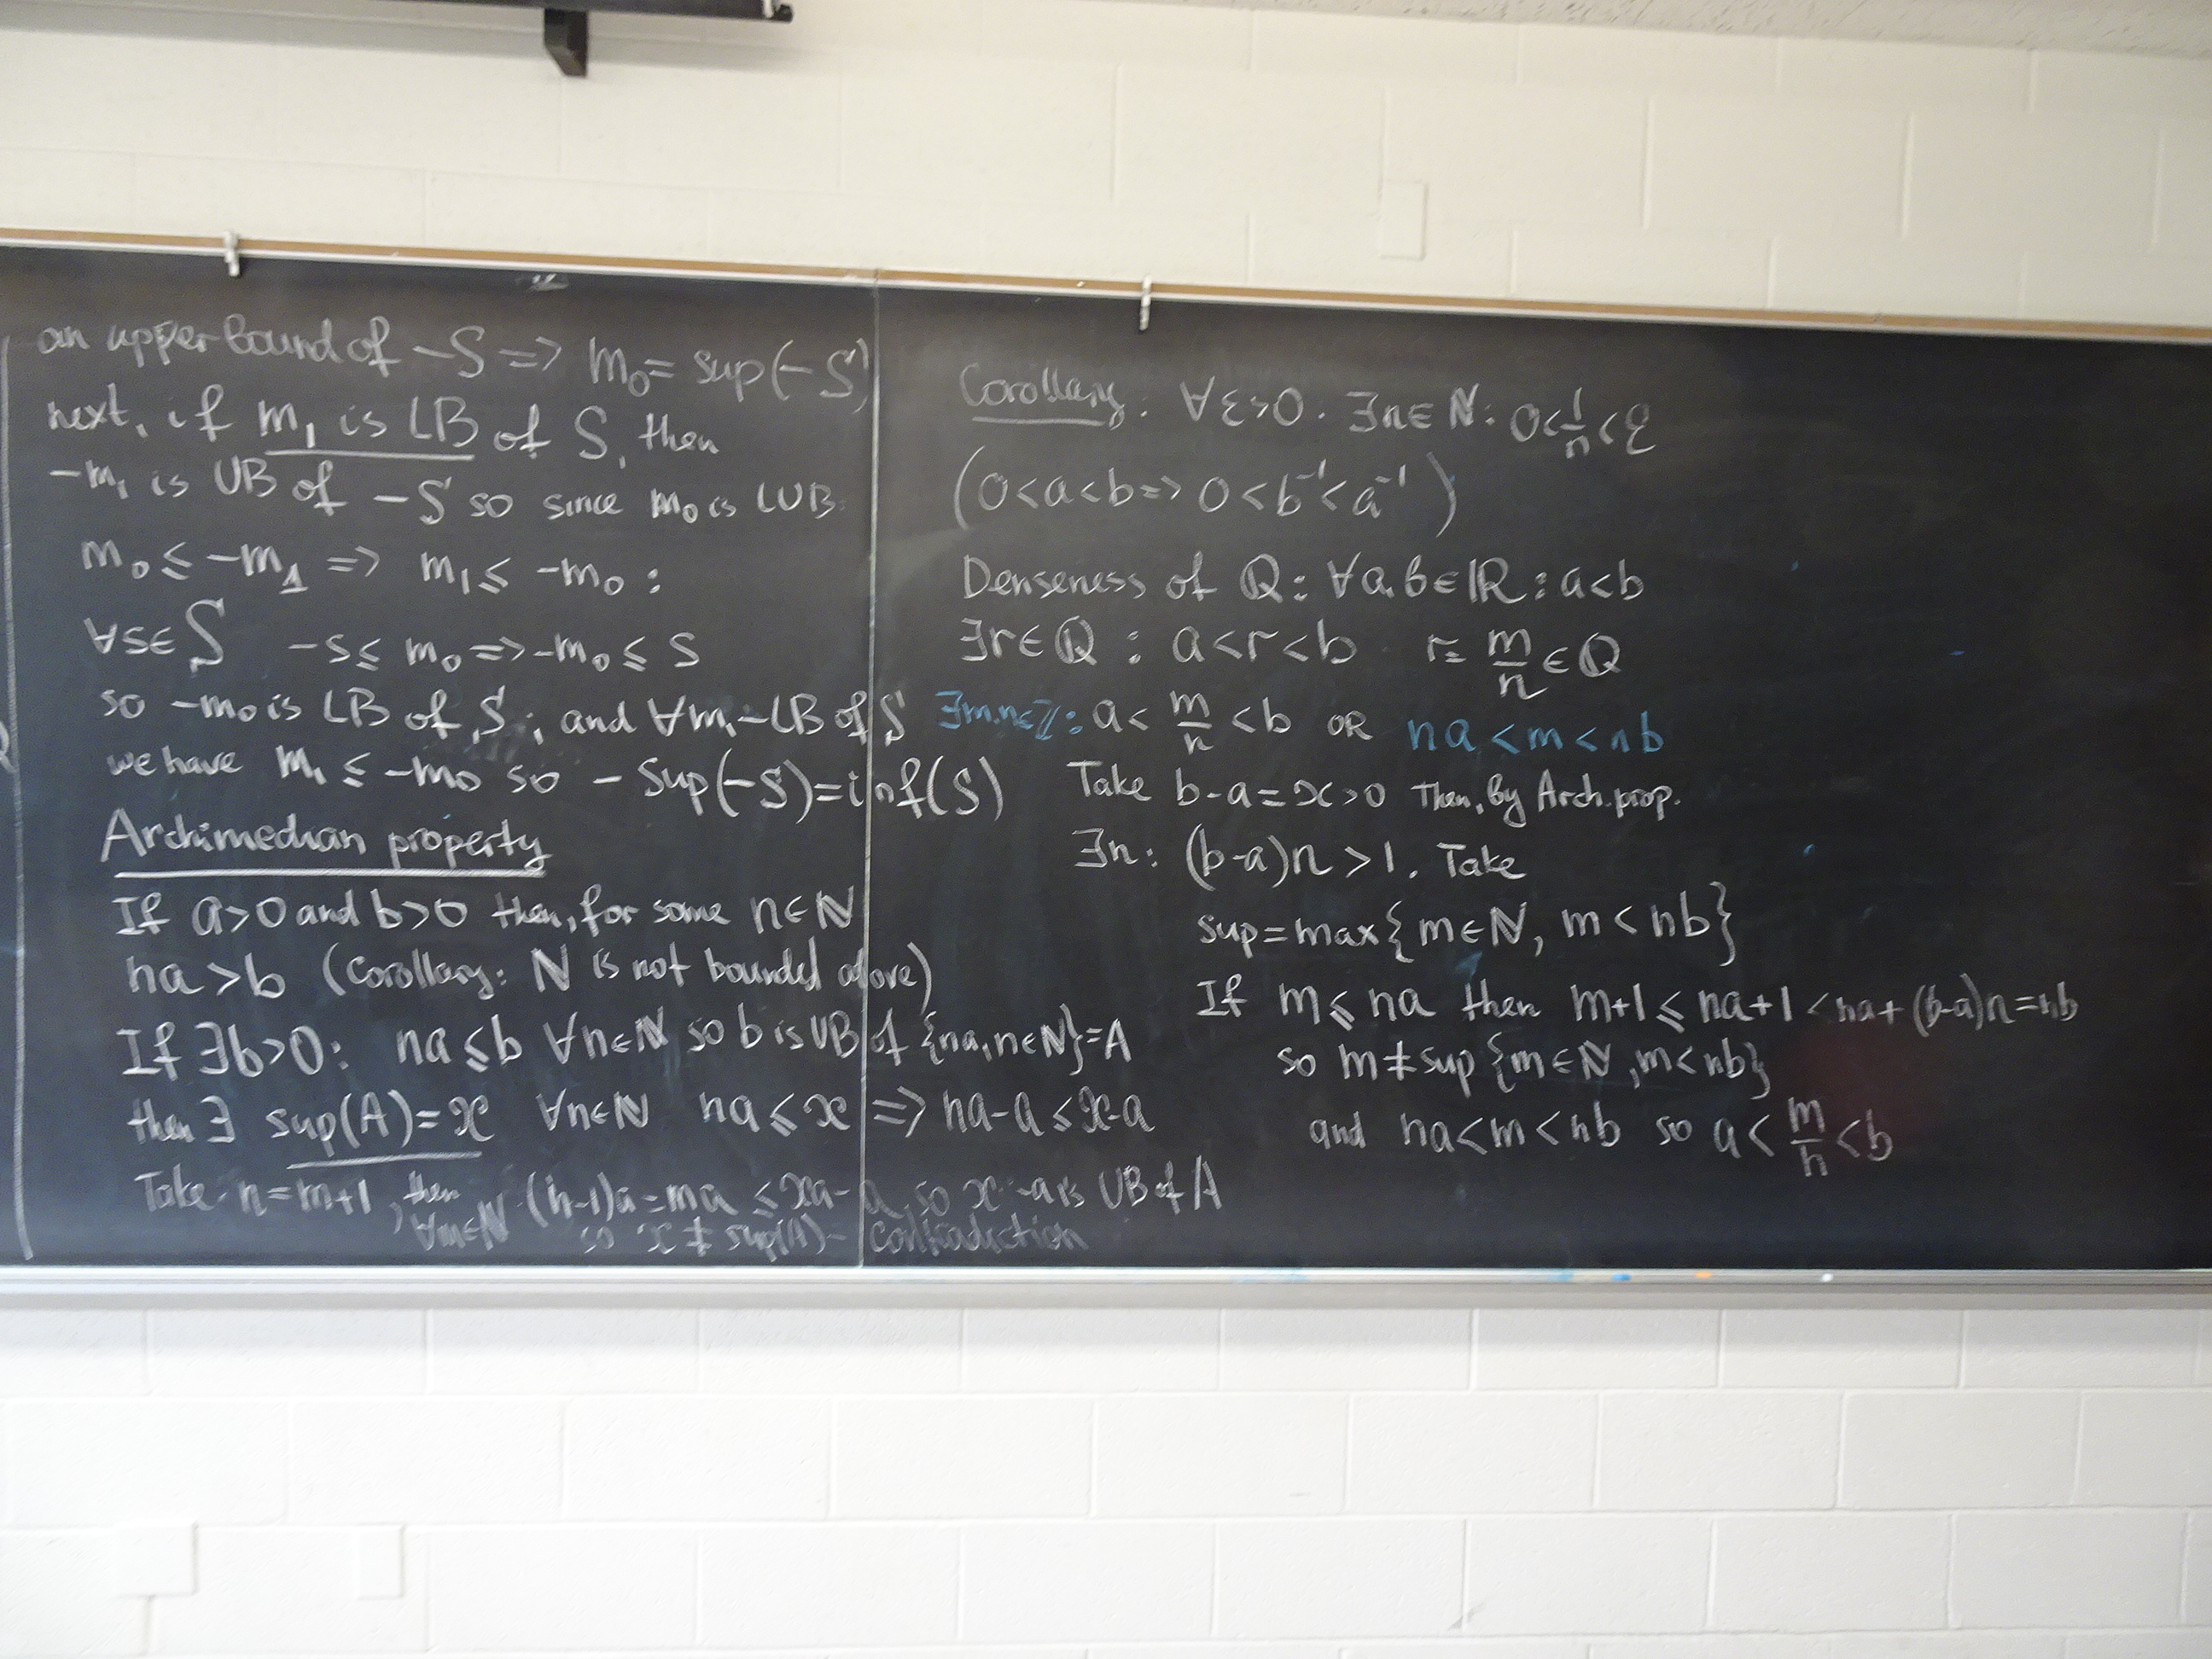 an upper bound of -S => m₀ = sup(-S)
next, if m₁ is LB of S, then
-m₁ is UB of -S so since m₀ is LUB.
m₀ ≤ -m₁ => m₁ ≤ -m₀ :
∀s∈S -s ≤ m₀ => -m₀ ≤ s
so -m₀ is LB of S, and ∀m₁ - LB of S
we have m₁ ≤ -m₀ so - Sup(-S) = inf(S)
Archimedian property
If a>0 and b>0 then, for some n∈ℕ
na > b (Corollary: ℕ is not bounded above)
If ∃b>0: na ≤ b ∀n∈ℕ so b is UB of {na, n∈ℕ} = A
then ∃ sup(A) = x ∀n∈ℕ na ≤ x => na-a ≤ x-a
Take n = m+1, then (n-1)a = ma ≤ xa-a, so x-a is UB of A
∀m∈ℕ so x ≠ sup(A) - contradiction
Corollary: ∀ε>0. ∃n∈ℕ: 0 < 1/n < ε
(0<a<b => 0 < b⁻¹ < a⁻¹)
Denseness of ℚ: ∀a,b∈ℝ : a<b
∃r∈ℚ : a<r<b r = m/n ∈ ℚ
∃m,n∈ℤ: a < m/n < b OR na < m < nb
Take b-a = x > 0 Then, By Arch. prop.
∃n: (b-a)n > 1. Take
sup = max{m∈ℕ, m < nb}
If m ≤ na then m+1 ≤ na+1 < na + (b-a)n = nb
so m ≠ sup {m∈ℕ, m<nb}
and na < m < nb so a < m/n < b